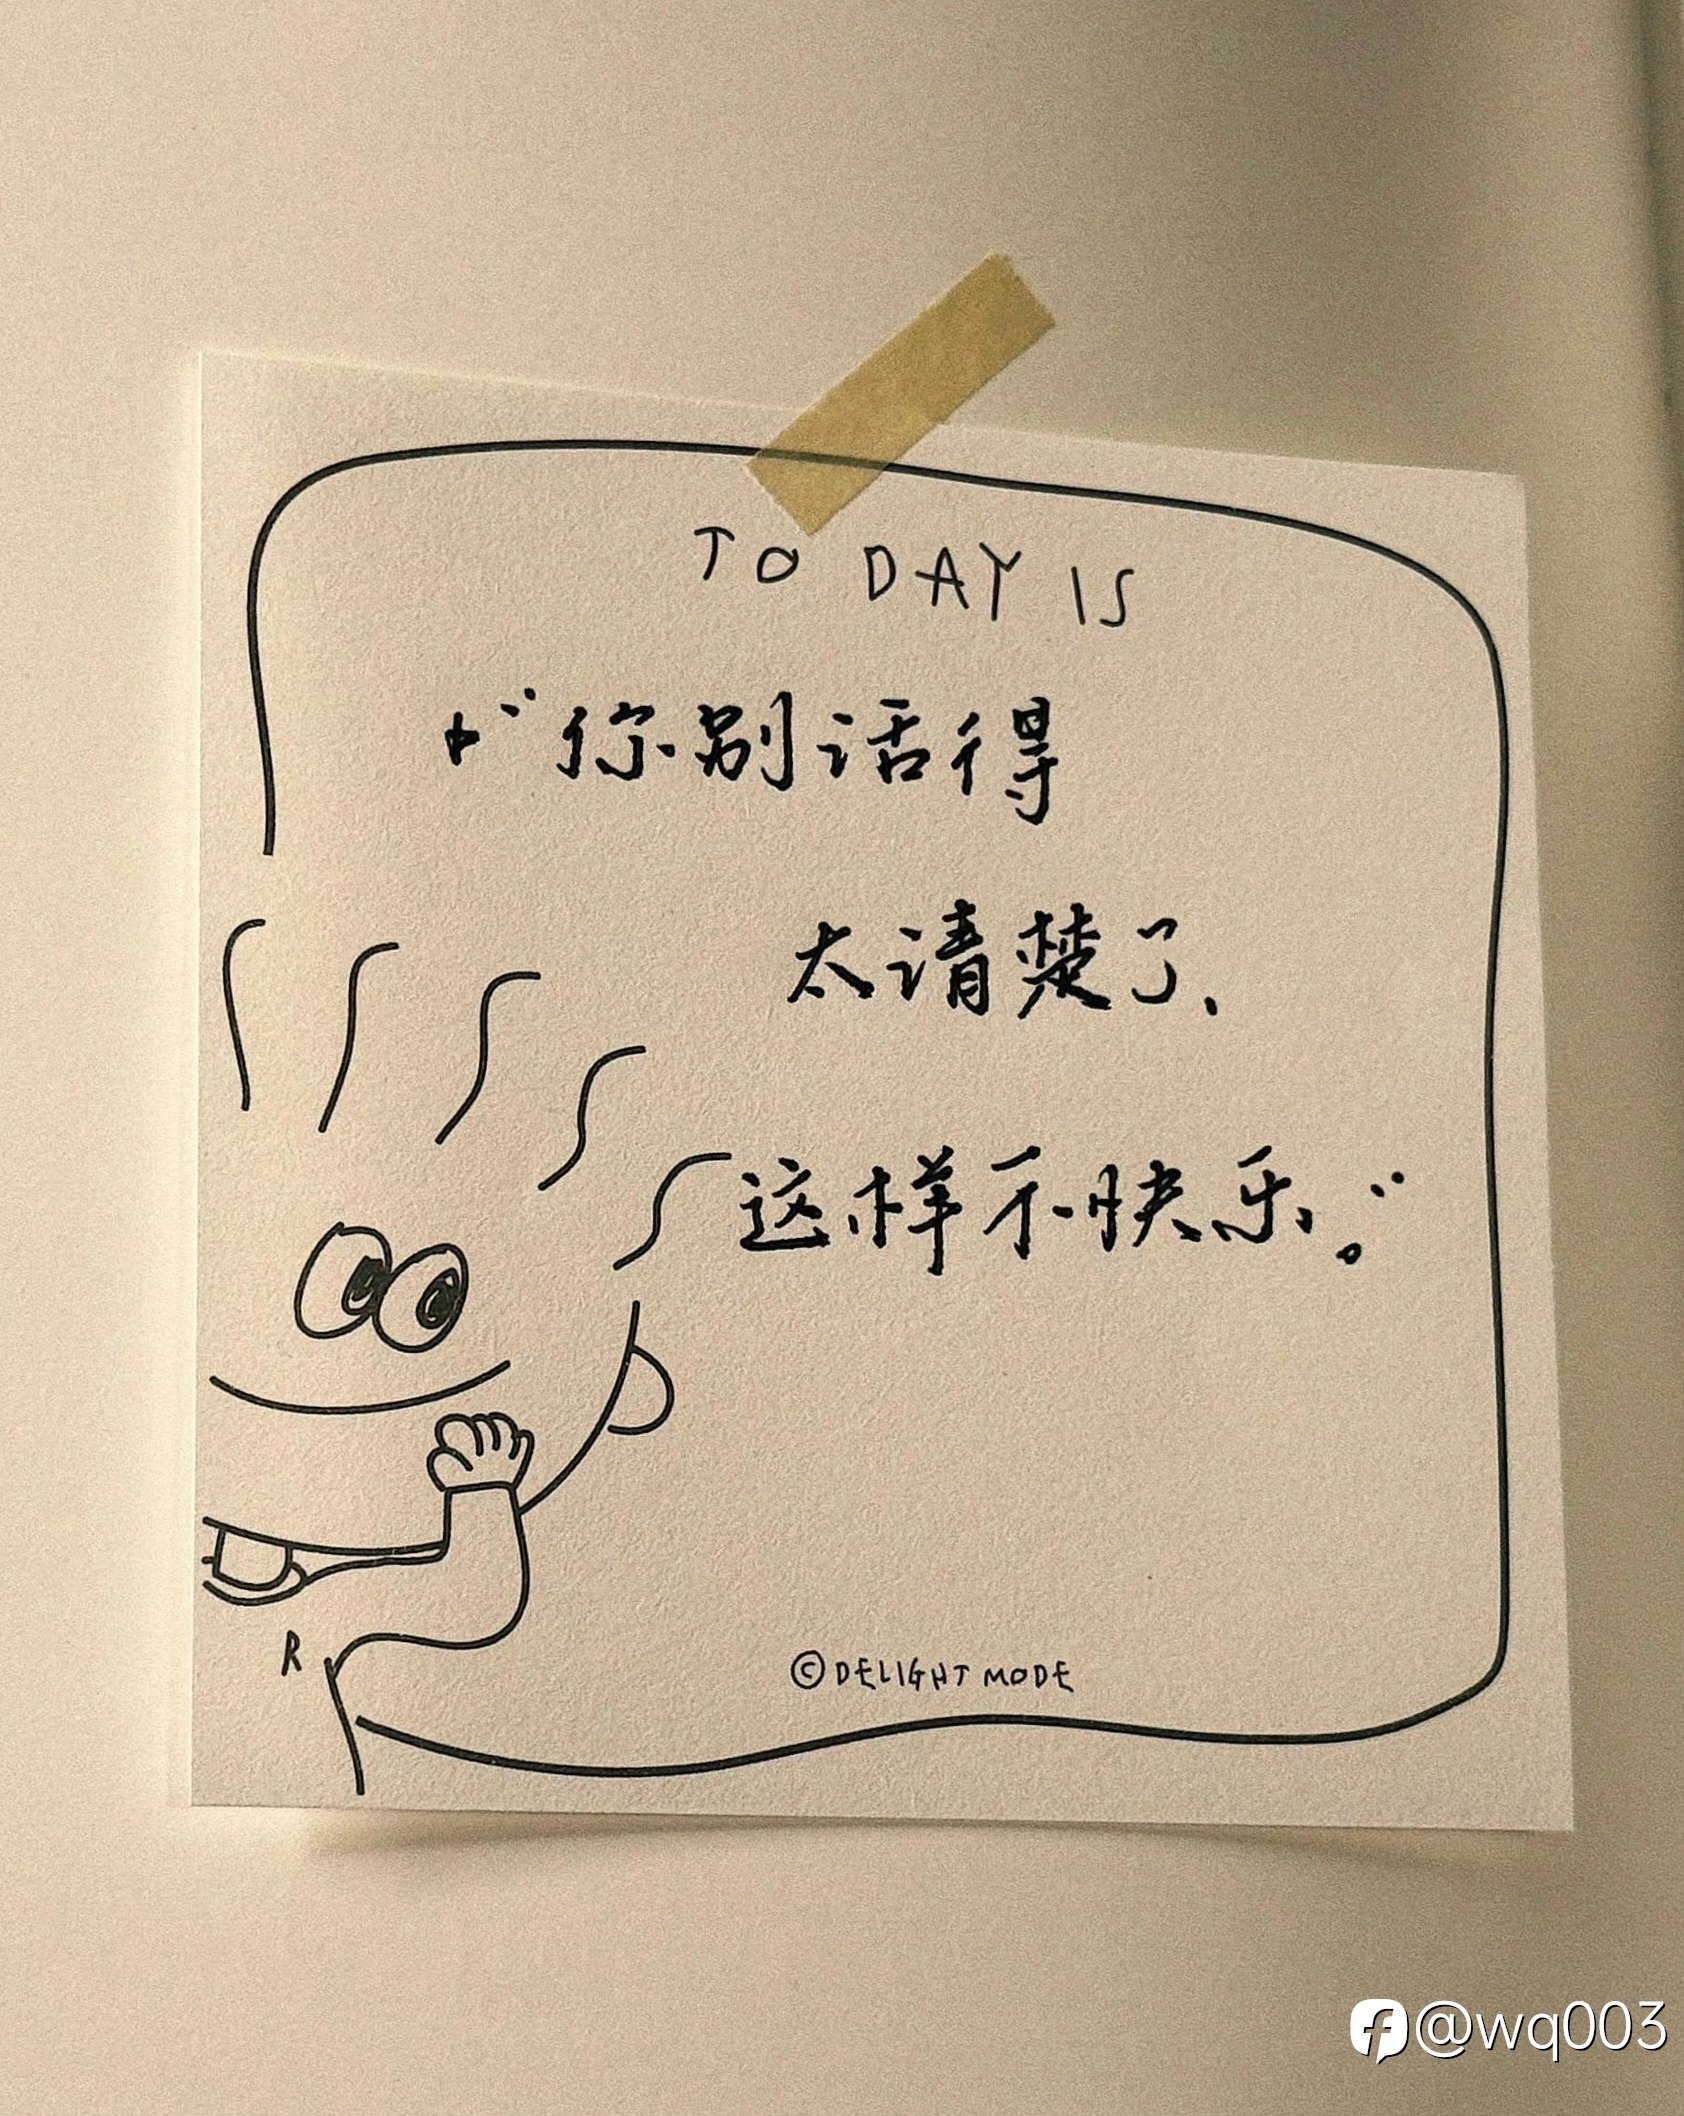 TO DAY IS
“你别话得
太请楚了、
这样不快乐。”
R
©DELIGHT MODE
@wq003